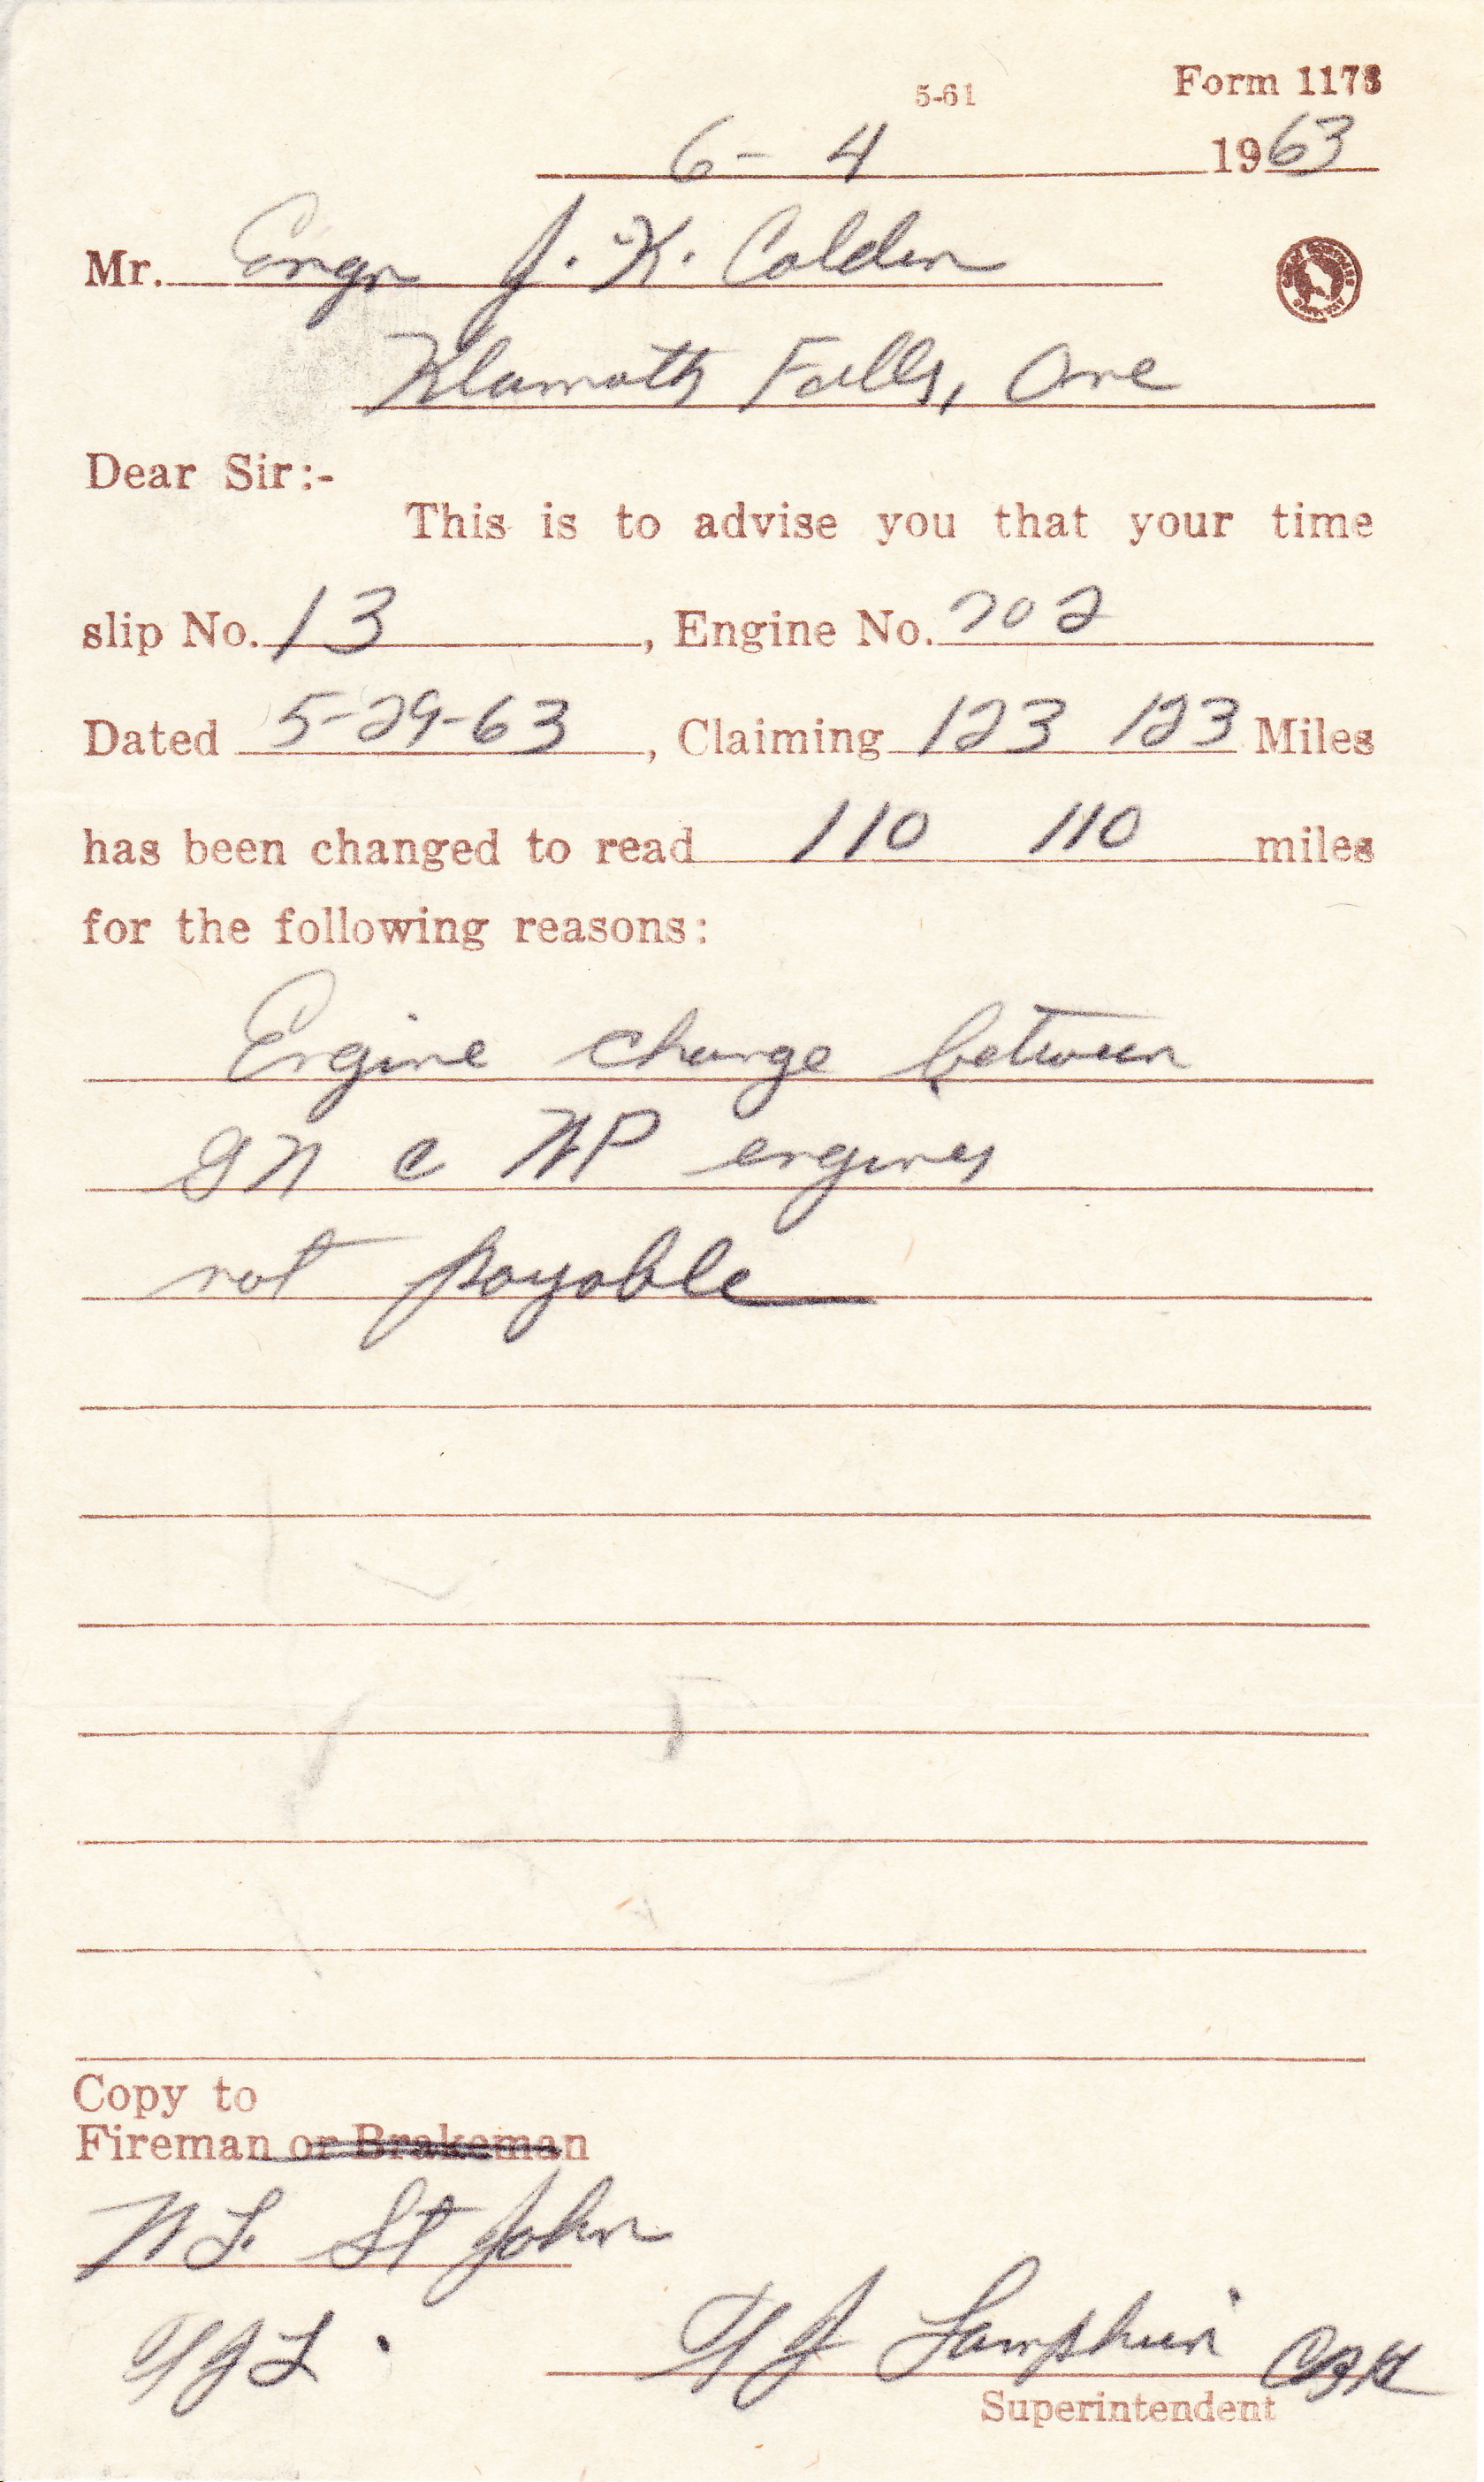 5-61 Form 1178
6-4 1963
Mr. Engr J. K. Colder
Klamath Falls, Ore
Dear Sir:-
This is to advise you that your time
slip No. 13, Engine No. 702
Dated 5-29-63, Claiming 123 123 Miles
has been changed to read 110 110 miles
for the following reasons:
Engine change between
GN & WP engines
not payable
Copy to
Fireman or Brakeman
St John
Superintendent